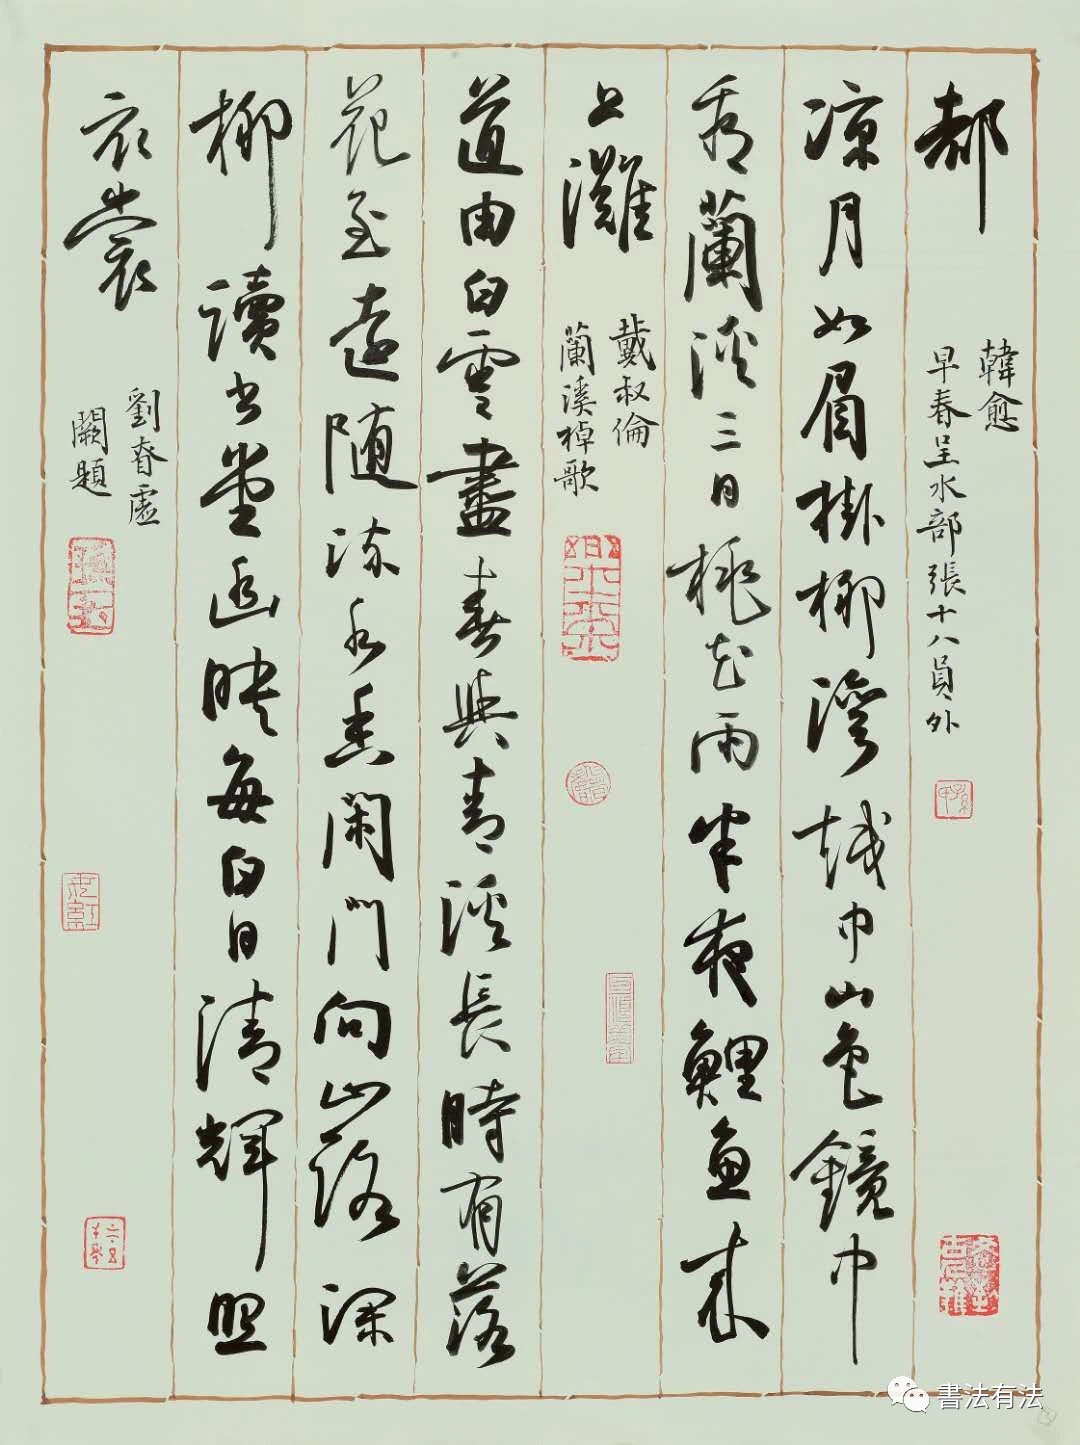 都
韓愈
早春呈水部張十八員外
涼月如眉掛柳灣越中山色鏡中
看蘭溪三日桃花雨半夜鯉魚來
上灘
戴叔倫
蘭溪棹歌
道由白雲盡春與青溪長時有落
花至遠隨流水香閑門向山路深
柳讀書堂幽映每白日清輝照
衣裳
劉眘虛
闕題
書法有法